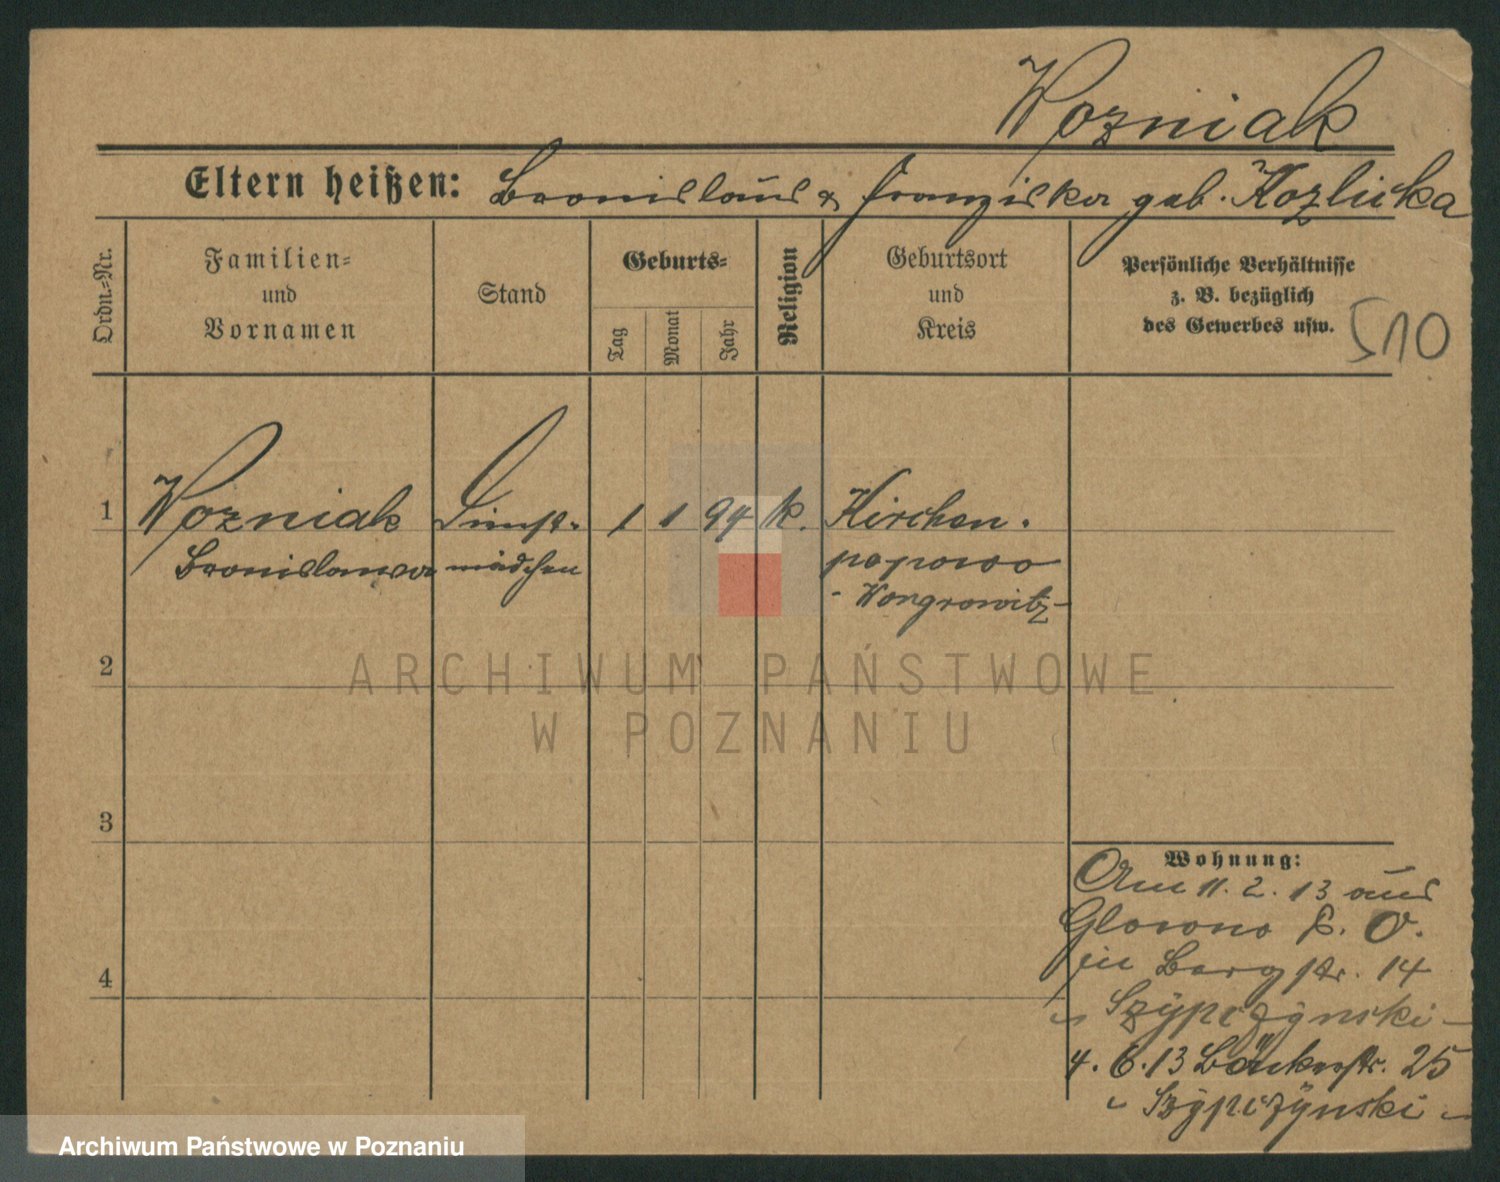 Wozniak
Eltern heißen: Bronislaus & Franziska geb. Kozlicka
Ordn.-Nr.
Familien-
und
Vornamen
Stand
Geburts-
Tag
Monat
Jahr
Religion
Geburtsort
und
Kreis
Persönliche Verhältnisse
z. B. bezüglich
des Gewerbes usw.
510
1 Wozniak Dienst- 1 1 94 k. Kirchen
Bronislawa mädchen popowo
- Wongrowitz -
ARCHIWUM PAŃSTWOWE
W POZNANIU
2
3
4
Wohnung:
Am 11.2.13 aus
Glowno P. O.
in Bergstr. 14
Szÿpczÿnski -
4.6.13 Bäckerstr. 25
Szÿpczÿnski -
Archiwum Państwowe w Poznaniu